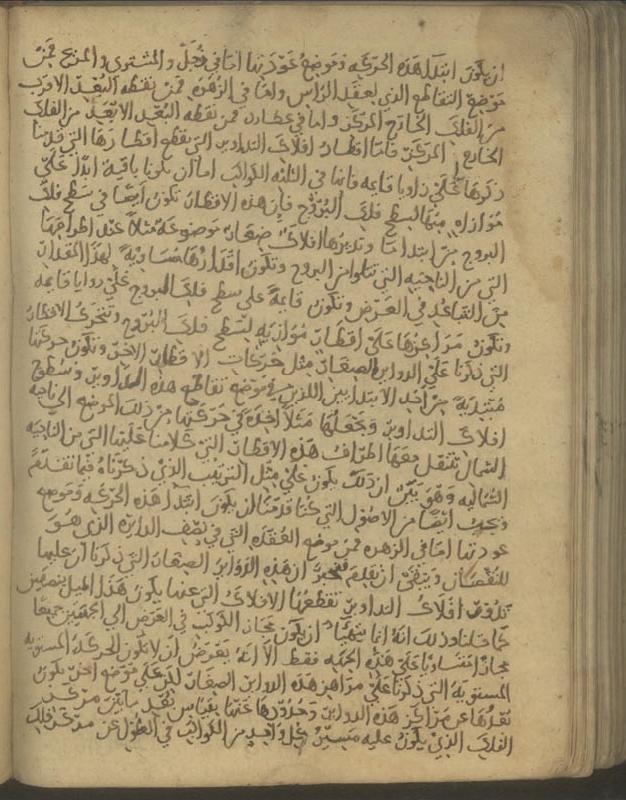 ان يكون ابتدا هذه الحركه وموضع عودتها اما في زحل والمشترى والمريخ فمن
موضع التقاطع الذي لعقد الراس واما في الزهره فمن نقطه البعد الاقرب
من الفلك الخارج المركز واما في عطارد فمن نقطه البعد الابعد من الفلك
الخارج المركز فاما اقطار افلاك التداوير التي تقطع اقطارها التي قدمنا
ذكرها على زوايا قايمه فانها في الثلثه الكواكب اما ان تكون باقيه ابدا على
موازاه منها لسطح فلك البروج فان هذه الاقطار تكون ايضا في سطح فلك
البروج من ابتدا ما وتديرها افلاك صغار موضوعه مثلا عند اطرافها
التي من الناحيه التي تتلوا من البروج وتكون اقدارها مساويه لهذا المقدار
من التباعد في العرض وتكون قايمه على سطح فلك البروج على زوايا قايمه
وتكون مراكزها على اقطار موازيه لسطح فلك البروج وتتحرك الاقطار
التي ذكرنا على الدواير الصغار مثل حركات الاقطار الاخر وتكون حركتها
مبتديه من احد الابتدايين اللذين في موضع تقاطع هذه التداوير وسطوح
افلاك التداوير ونجعلها مثلا اخذه في حركتها من ذلك الموضع الى ناحيه
الشمال تنتقل معها اطراف هذه الاقطار التي كلامنا عليها التي من الناحيه
الشماليه وهو بين ان ذلك يكون على مثل الترتيب الذي ذكرناه فيما تقدم
ويجب ايضا من الاصول التي كنا قدمنا ان يكون ابتدا هذه الحركه وموضع
عودتها اما في الزهره فمن موضع العقده التي في نصف الدايره الذي هو
للنقصان وينبغي ان نقدم فنخبر ان هذه الدواير الصغار التي ذكرنا ان عليها
تكون افلاك التداوير تقطعها الافلاك التي عنها يكون هذا الميل بنصفين
كما قلنا وذلك انه انما يتهيا ان يكون مجاز الكواكب في العرض الى الجهتين جميعا
مجازا متساويا على هذه الجهه فقط الا انه يعرض ان لا تكون الحركه المستويه
المستويه التي ذكرنا على مراكز هذه الدواير الصغار لكن على موضع اخر يكون
بعدها عن مراكز هذه الدواير وحدودها عنها بقياس بعد ما بين مركز
الفلك الذي يكون عليه مسير كل واحد من الكواكب في الطول عن مركز فلك